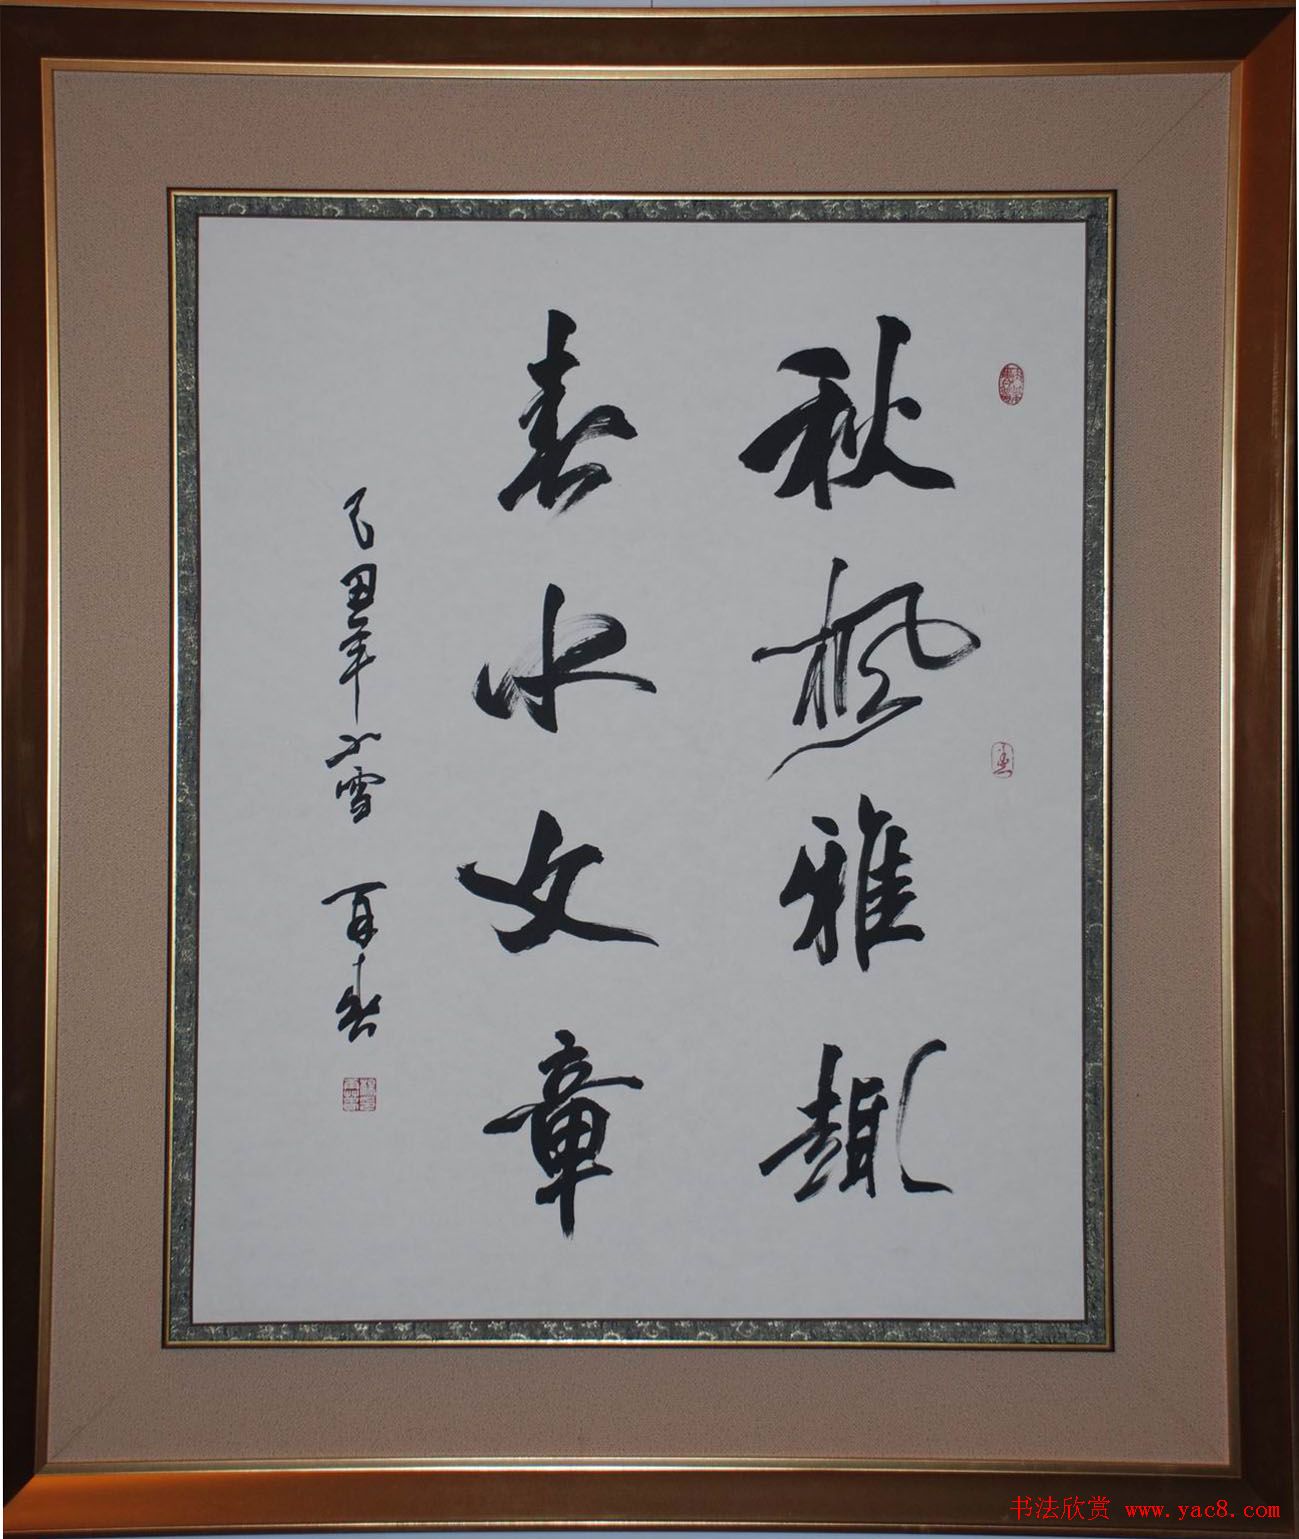 秋枫雅趣
春水文章
己丑年小雪 百春
书法欣赏 www.yac8.com